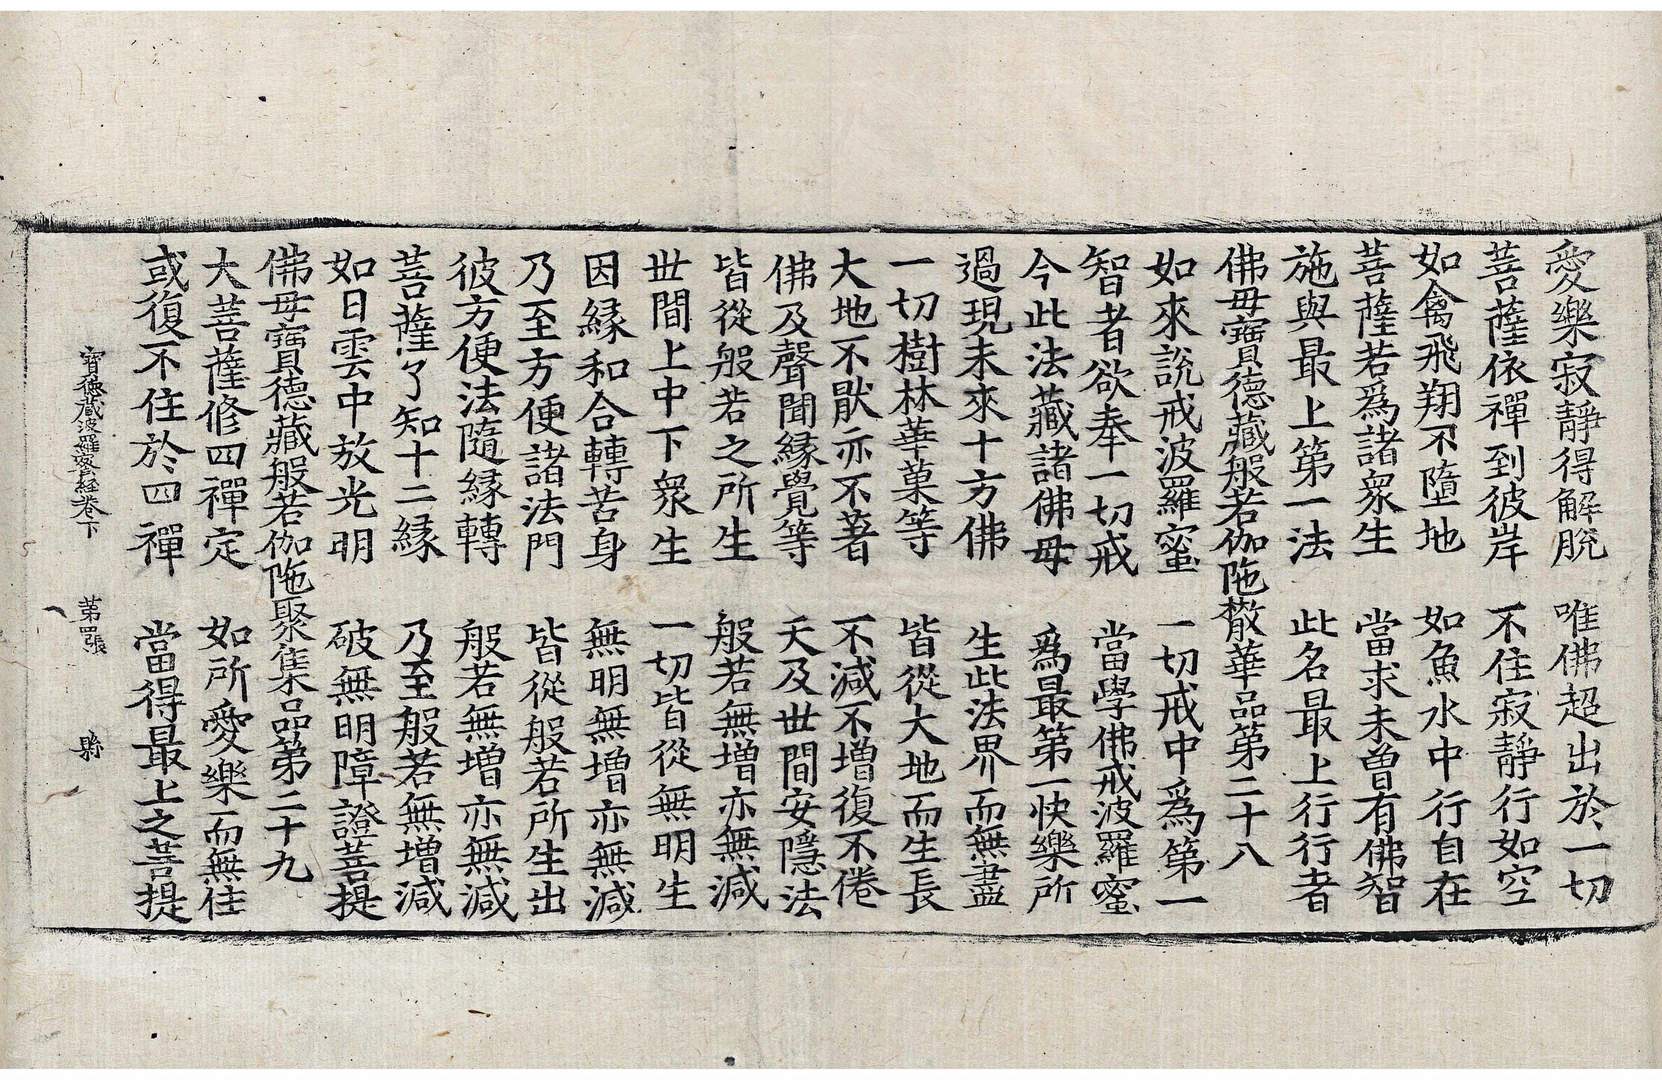 愛樂寂靜得解脫　唯佛超出於一切
菩薩依禪到彼岸　不住寂靜行如空
如禽飛翔不墮地　如魚水中行自在
菩薩若爲諸衆生　當求未曾有佛智
施與最上第一法　此名最上行行者
佛毋寶德藏般若伽陁𢿱華品第二十八
如來說戒波羅蜜　一切戒中爲第一
智者欲奉一切戒　當學佛戒波羅蜜
今此法藏諸佛母　爲最第一快樂所
過現未來十方佛　生此法界而無盡
一切樹林華菓等　皆從大地而生長
大地不猒亦不著　不減不增復不倦
佛及聲聞緣覺等　天及世間安隱法
皆從般若之所生　般若無增亦無減
世間上中下衆生　一切皆從無明生
因緣和合轉苦身　無明無增亦無減
乃至方便諸法門　皆從般若所生出
彼方便法隨緣轉　般若無增亦無減
菩薩了知十二緣　乃至般若無增減
如日雲中放光明　破無明障證菩提
佛毋寶德藏般若伽陁聚集品第二十九
大菩薩修四禪定　如所愛樂而無住
或復不住於四禪　當得最上之菩提
寶德藏波羅蜜經卷下　第四張　縣